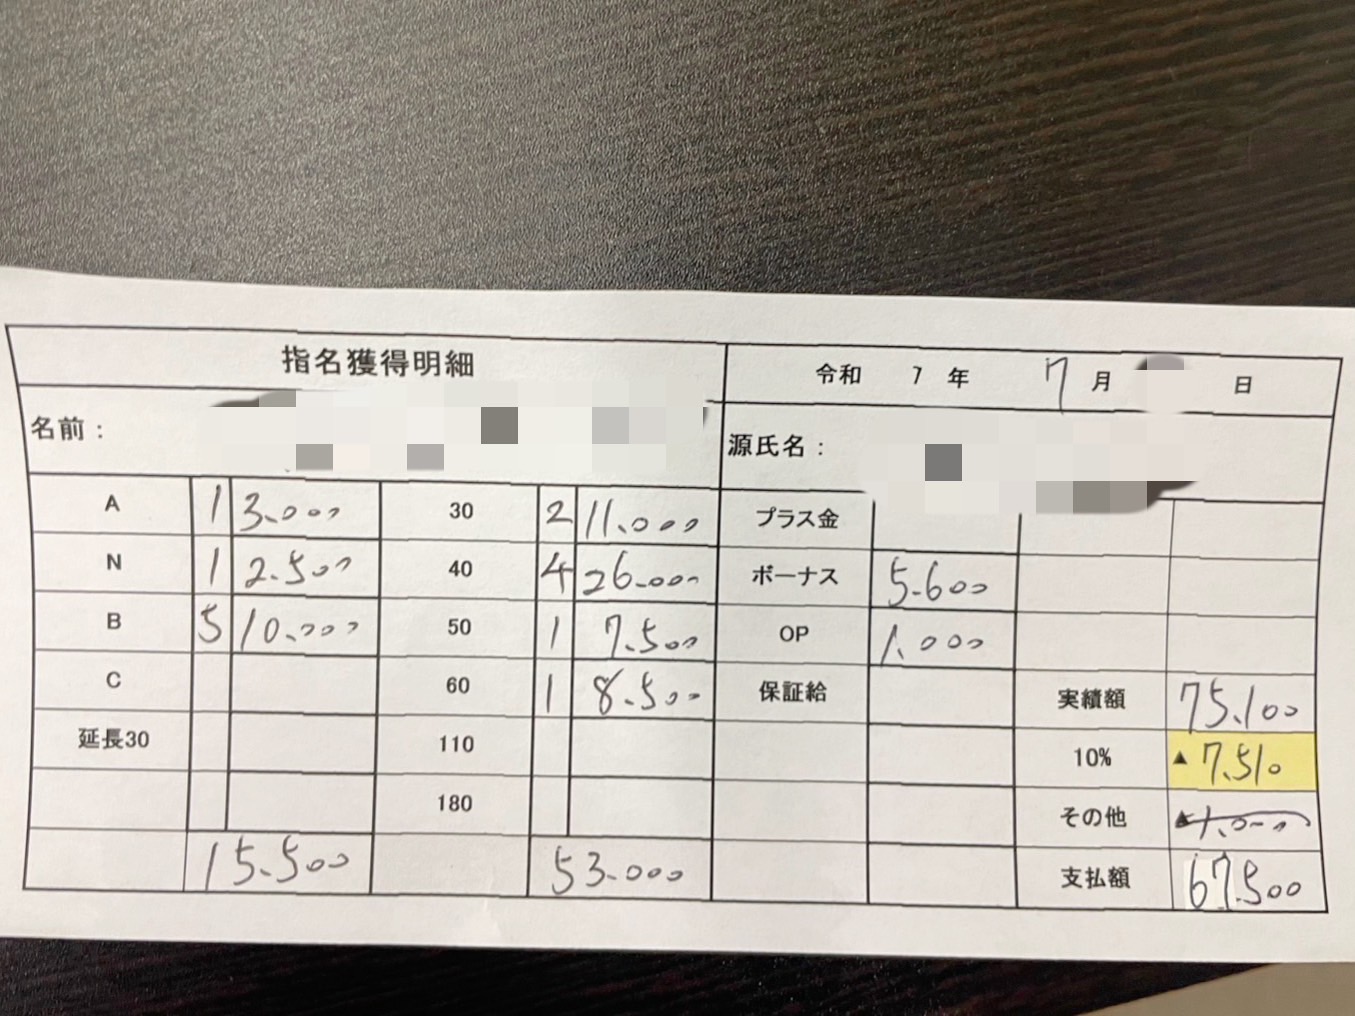 指名獲得明細 令和 7 年 7 月 日
名前： 源氏名：
A 1 3.000 30 2 11.000 プラス金
N 1 2.500 40 4 26.000 ボーナス 5.600
B 5 10.000 50 1 7.500 OP 1.000
C 60 1 8.500 保証給 実績額 75.100
延長30 110 10% ▲7.510
180 その他 ▲1.000
15.500 53.000 支払額 67500